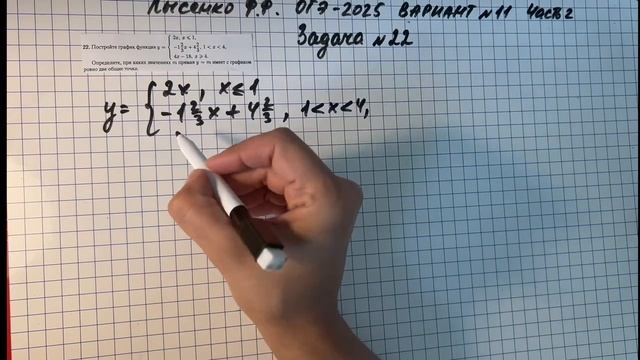 Лысенко Ф.Ф. ОГЭ-2025 ВАРИАНТ №11 Часть 2
Задача №22
22. Постройте график функции y = { 2x, x ⩽ 1,
-1 2/3 x + 4 2/3, 1 < x < 4,
4x - 18, x ⩾ 4.
Определите, при каких значениях m прямая y = m имеет с графиком
ровно две общие точки.
y = { 2x, x ≤ 1
-1 2/3 x + 4 2/3, 1 < x < 4,